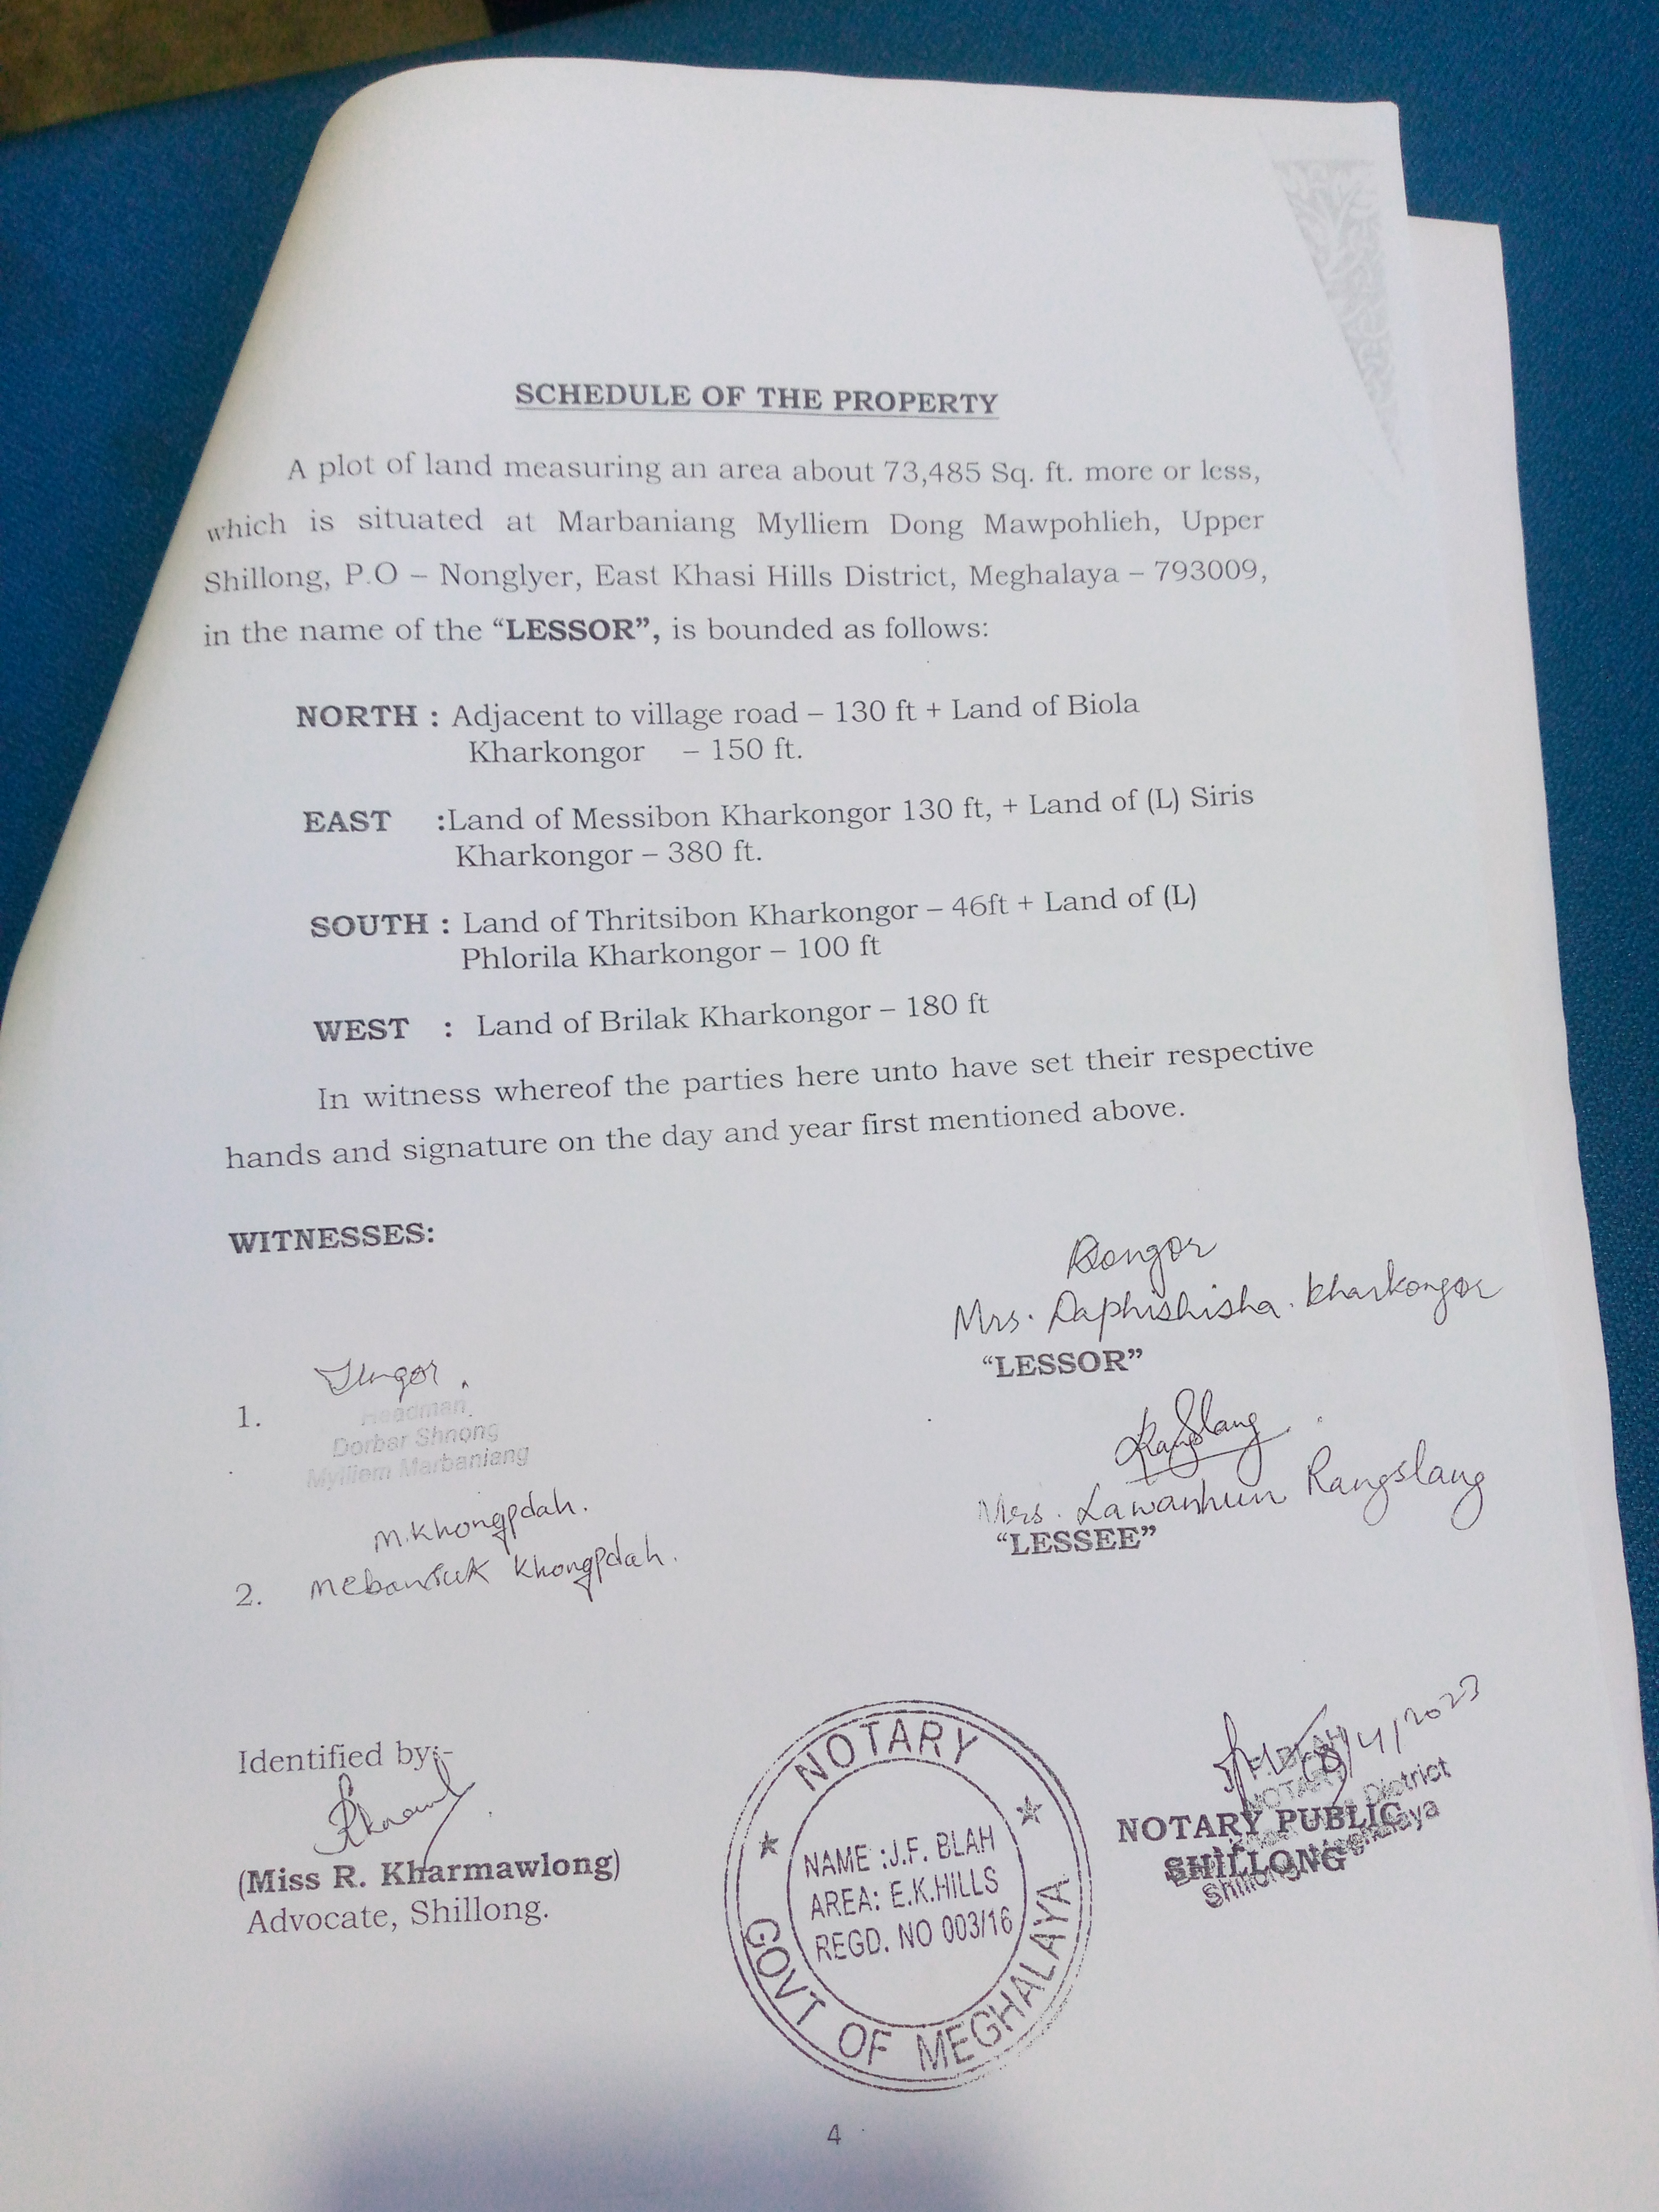 SCHEDULE OF THE PROPERTY
A plot of land measuring an area about 73,485 Sq. ft. more or less,
which is situated at Marbaniang Mylliem Dong Mawpohlieh, Upper
Shillong, P.O – Nonglyer, East Khasi Hills District, Meghalaya – 793009,
in the name of the “LESSOR”, is bounded as follows:
NORTH : Adjacent to village road – 130 ft + Land of Biola
Kharkongor – 150 ft.
EAST :Land of Messibon Kharkongor 130 ft, + Land of (L) Siris
Kharkongor – 380 ft.
SOUTH : Land of Thritsibon Kharkongor – 46ft + Land of (L)
Phlorila Kharkongor – 100 ft
WEST : Land of Brilak Kharkongor – 180 ft
In witness whereof the parties here unto have set their respective
hands and signature on the day and year first mentioned above.
WITNESSES:
Mrs. Daphishisha. Kharkongor
“LESSOR”
1.
Headman
Dorbar Shnong
Mylliem Marbaniang
Rangslang
Mrs. Lawanhun Rangslang
“LESSEE”
M.Khongpdah.
2. Mebanruk Khongpdah.
Identified by:-
(Miss R. Kharmawlong)
Advocate, Shillong.
NOTARY
NAME :J.F. BLAH
AREA: E.K.HILLS
REGD. NO 003/16
GOVT OF MEGHALAYA
/4/2023
NOTARY PUBLIC
SHILLONG
4